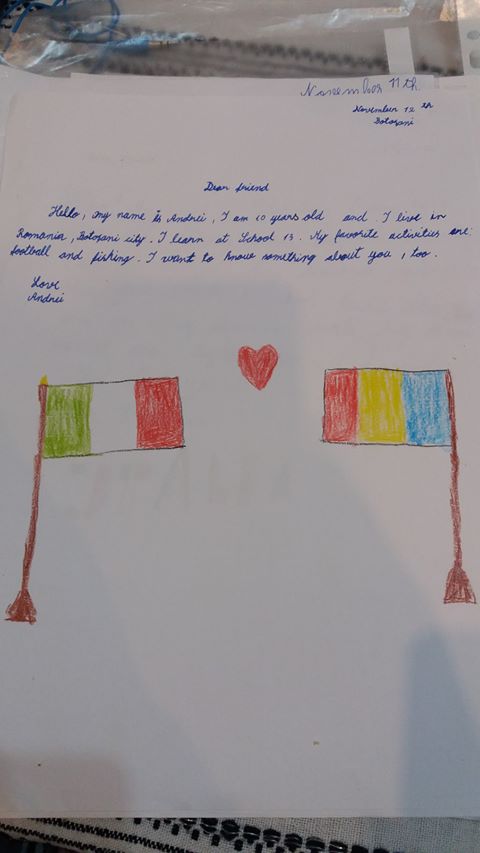 November 11th.
November 12th
Botosani
Dear friend
Hello, my name is Andrei, I am 10 years old and I live in
Romania, Botosani city. I learn at School 13. My favorite activities are:
football and fishing. I want to know something about you, too.
Love
Andrei